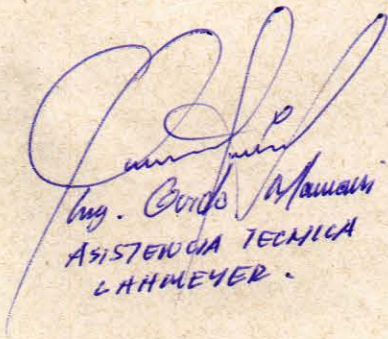 Ing. Guido Mamani
ASISTENCIA TECNICA
LAHMEYER.